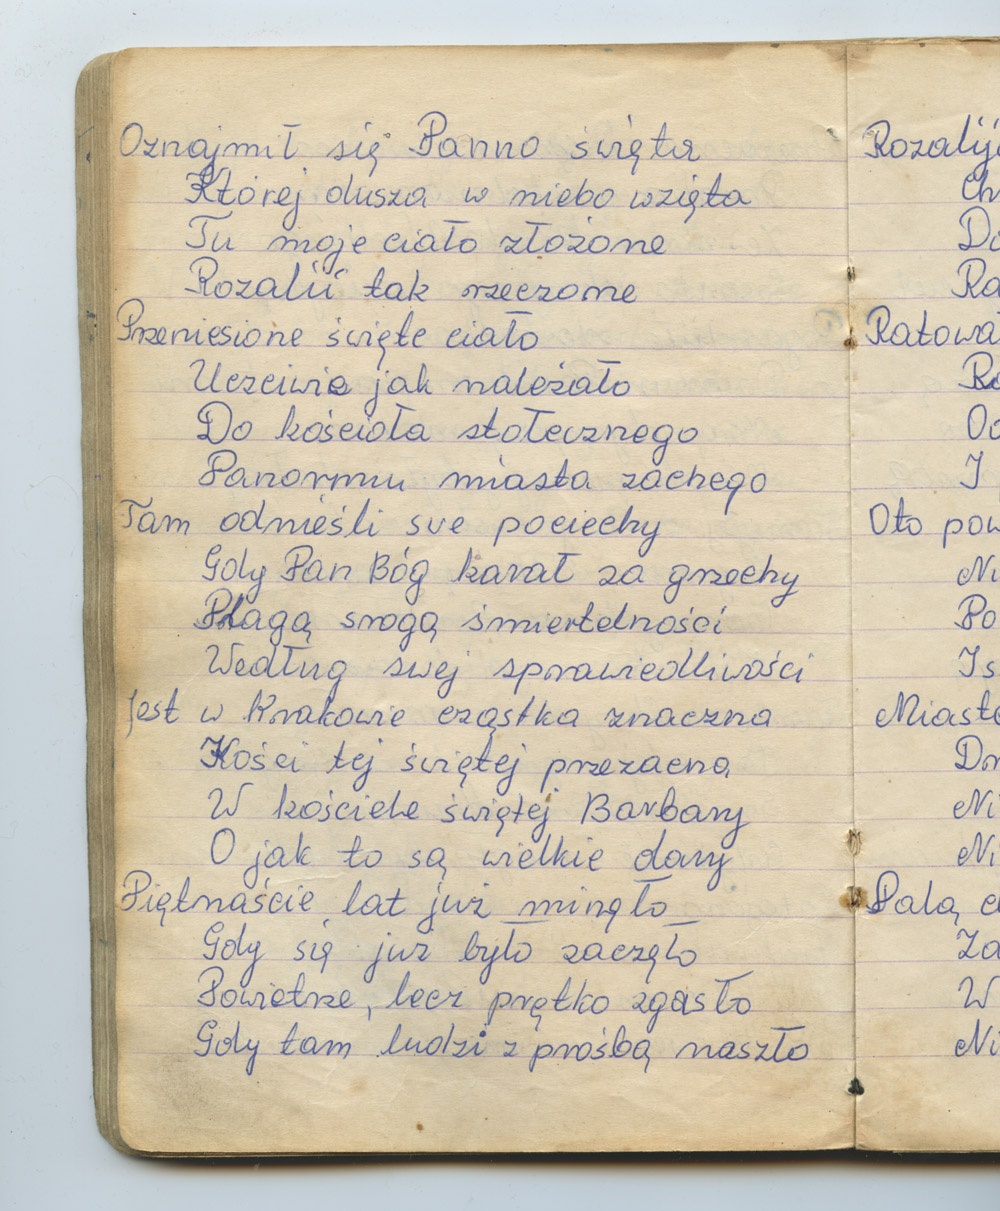 Oznajmił się Panno święta
Której dusza w niebo wzięta
Tu moje ciało złożone
Rozalii tak rzeczone
Przeniesione święte ciało
Uczciwie jak należało
Do kościoła stołecznego
Panormu miasta zachego
Tam odnieśli sve pociechy
Gdy Pan Bóg karał za grzechy
Plagą srogą śmiertelności
Według swej sprawiedliwości
Jest w Krakowie cząstka znaczna
Kości tej świętej przezacna
W kościele świętej Barbary
O jak to są wielkie dary
Piętnaście lat już minęło
Gdy się już było zaczęło
Powietrze, lecz prętko zgasło
Gdy tam ludzi z prośbą naszło
Rozalij
Ch
Do
Ra
Ratowa
Ro
Od
I
Oto pow
Ni
Po
Is
Miasto
Dr
Ni
Ni
Palą c
Za
W
Ni